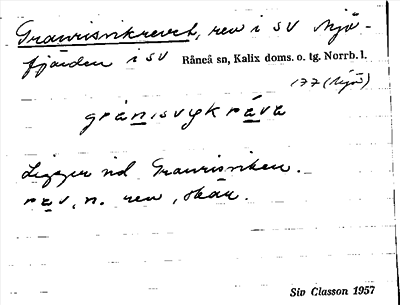 Granrisvikrevet, rev i SV Mjö-
fjärden i SV Råneå sn, Kalix doms. o. tg. Norrb. l.
177 (Mjö)
gránisvykráva
Ligger vid Granrisviken.
rav, n. rev, skär.
Siv Classon 1957